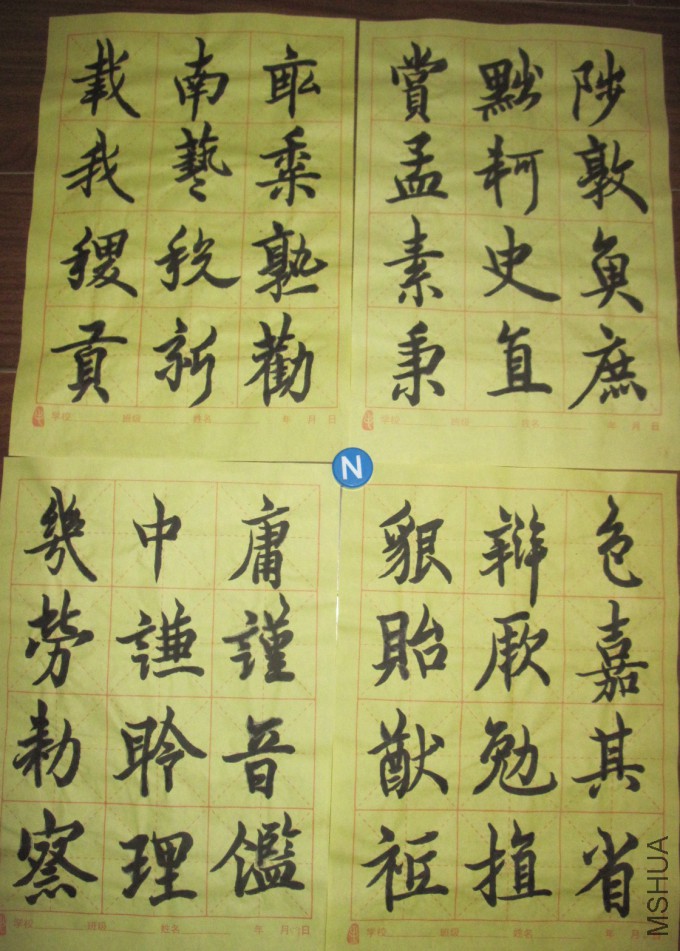 載南畝
我藝黍
稷稅熟
貢新勸
学校 班级 姓名 年 月 日
賞黜陟
孟軻敦
素史魚
秉直庶
学校 班级 姓名 年 月 日
N
幾中庸
勞謙謹
勑聆音
察理鑑
学校 班级 姓名 年 月 日
貌辯色
貽厥嘉
猷勉其
祗植省
学校 班级 姓名 年 月
MSHUA